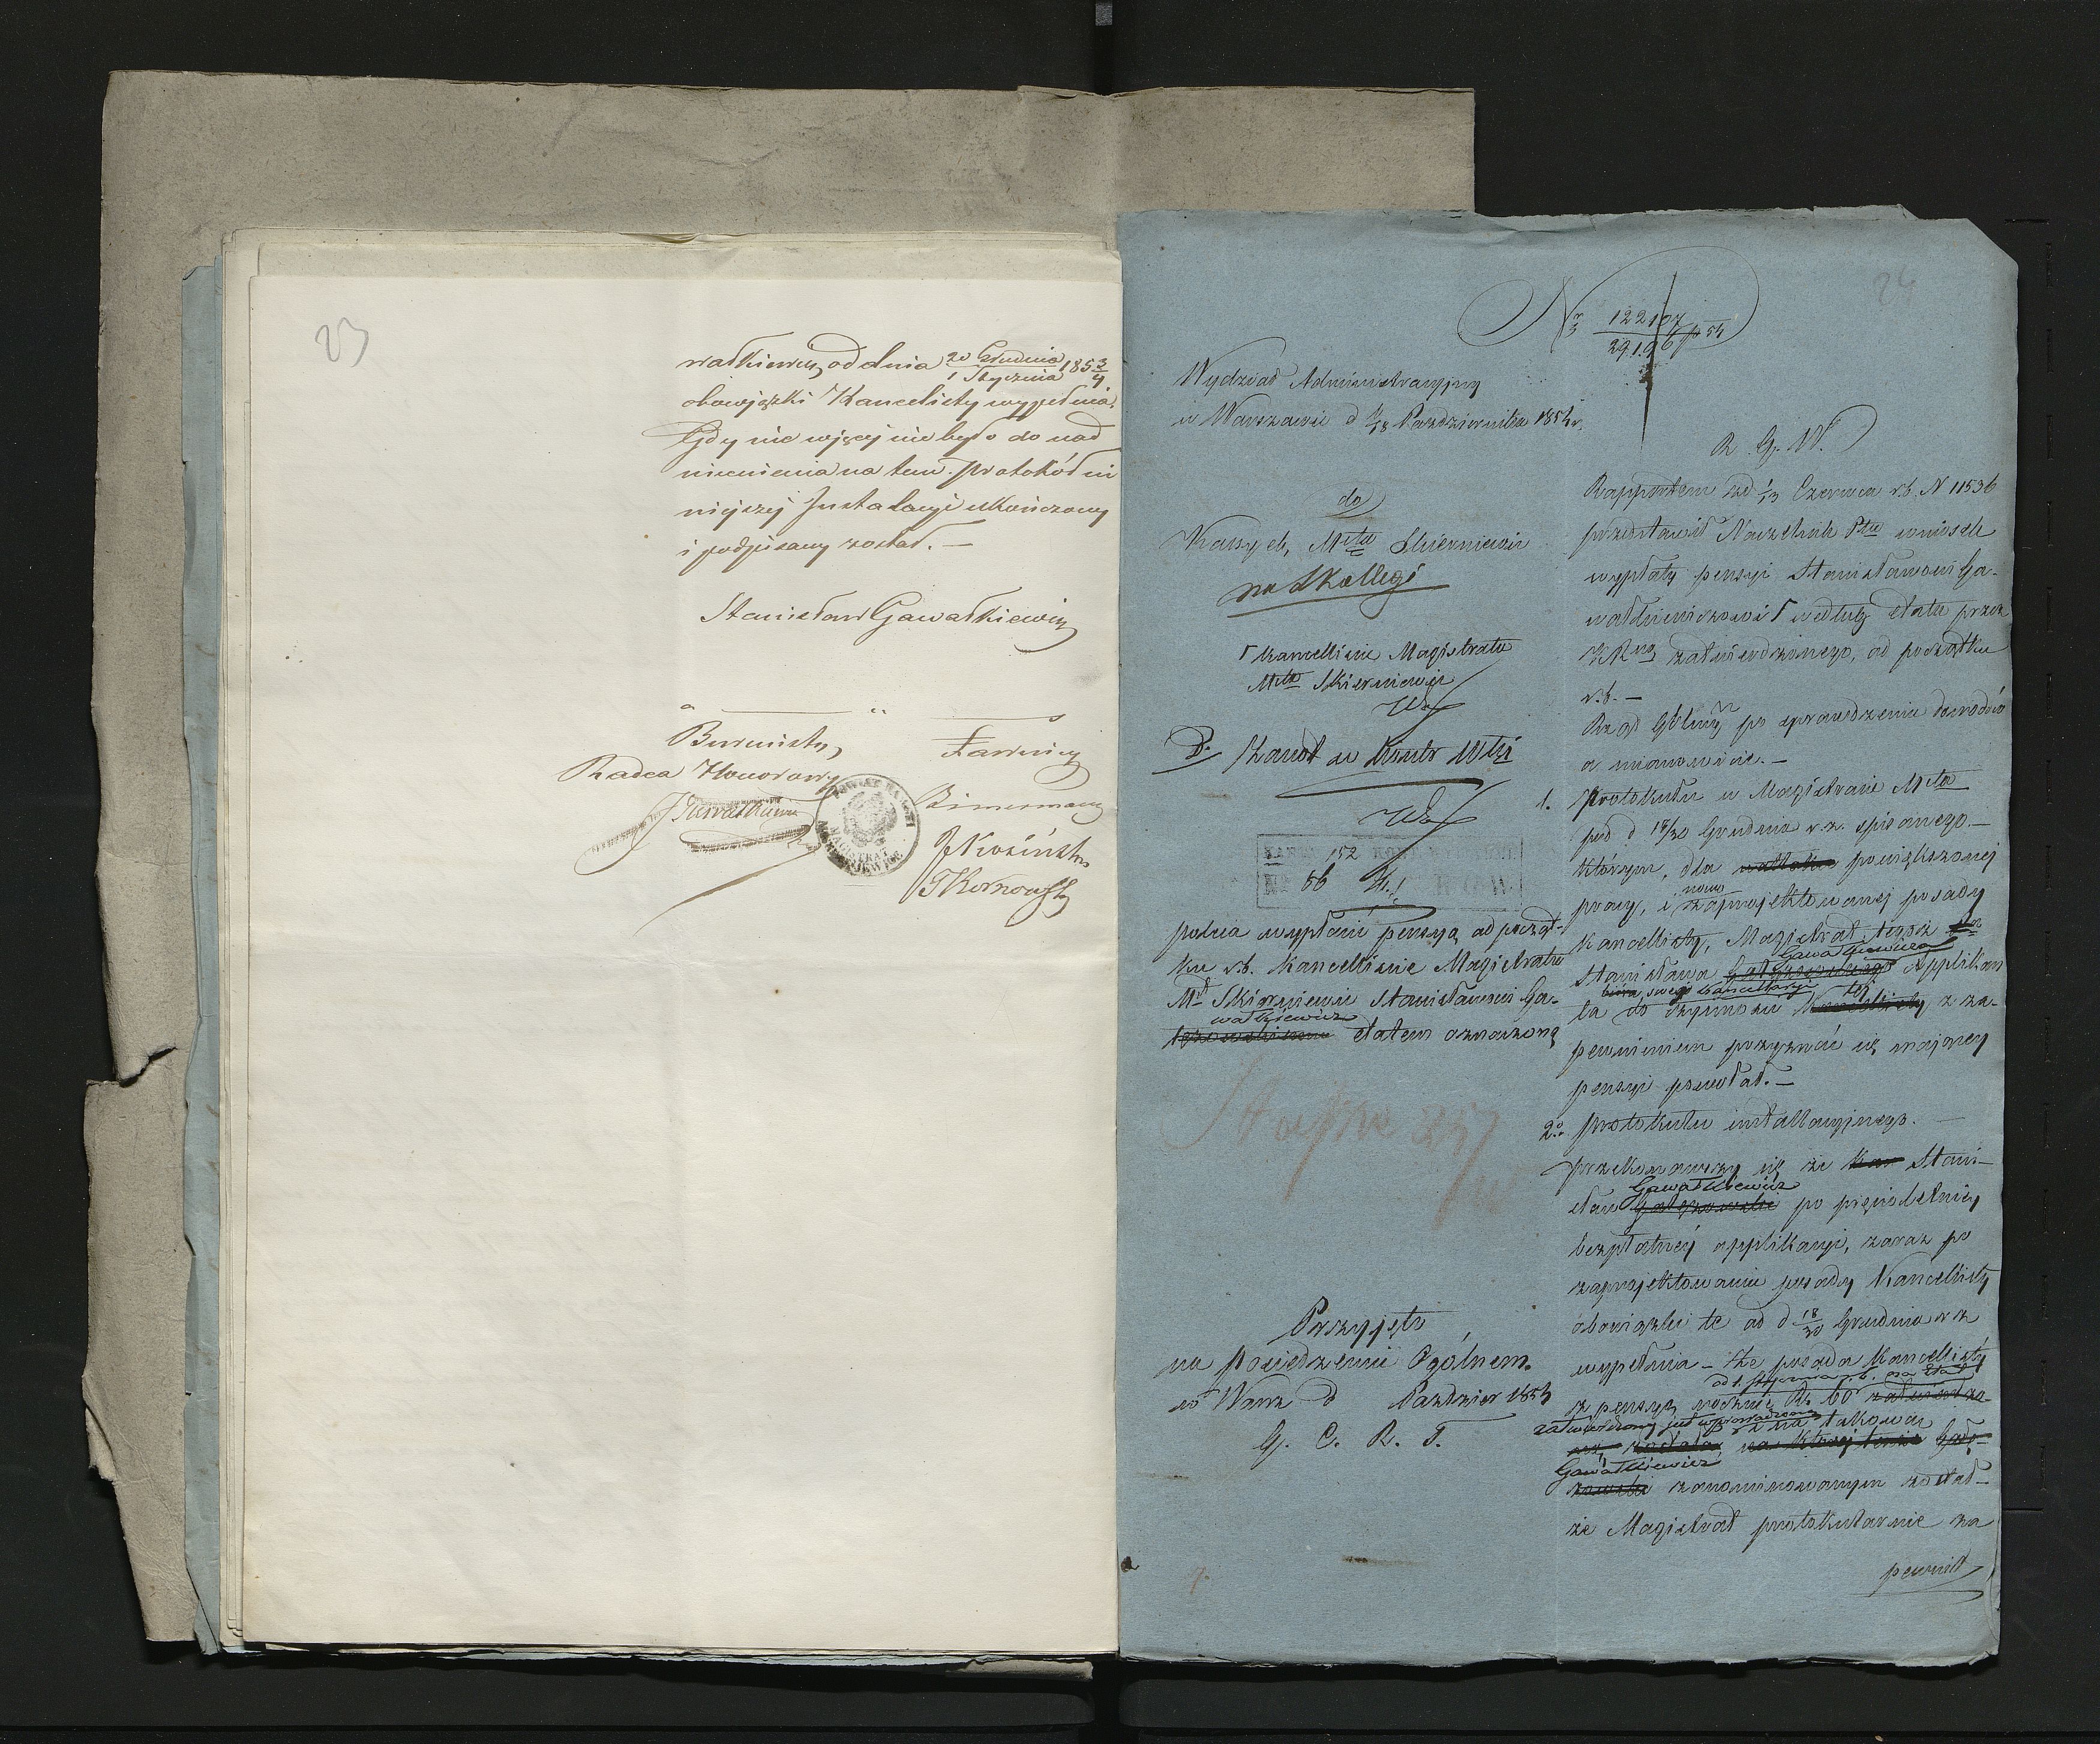 23
wałkiewicz, od dnia 20 Grudnia / 1 Stycznia 1853/4
obowiązki Kancelisty wypełnia.
Gdy nic więcej nie było do nad
mienienia na tem protokół ni
niejszej Instalacyi ukończony
i podpisany został. —
Stanisław Gawałkiewicz
Burmistrz,
Radca Honorowy
Ławnicy
Zimermann
J Kosiński
MAGISTRAT
24
Nr 122107
29196 p 54
Wydział Administracyjny
w Warszawie d 6/18 Października 1854 r.
R. G. W.
do
Kassy ek. Mta Skierniewic
na Skollegi
Γ Kancelliście Magistratu
Mta Skierniewic
152
86
poleca wypłacić pensyą od począt-
ku r.b. Kancelliście Magistratu
Mta Skierniewic Stanisławowi Ga-
wałkiewicz
etatem oznaczoną
Przyjęto
na posiedzeniu Ogólnem.
w Warsz d Paździer 1854
G. C. R. T.
Rapportem z d 1/13 Czerwca r.b. N 11536
przedstawił Naczelnik Ptu wniosek
wypłaty pensyi Stanisławowi Ga-
wałkiewiczowi Γ według etatu przez
KR zatwierdzonego, od początku
r.b. —
Rząd Gubny po sprawdzeniu dowodów
a mianowicie. —
1. Protokułu w Magistracie Mta
pod d 18/30 Grudnia r.z. spisanego. —
którym, dla powiększonej
pracy, i nowo zaprojektowanej posady
Kancellisty, Magistrat tegoż
Gawałkiewicza
Stanisława Applikan
biura swego Kancellaryi
ta do czynności tej z za-
pewnieniem przyznać się mającej
pensyi powołał. —
2o. protokułu installacyjnego. —
przekonawszy się że Stani-
Gawałkiewicz
sław po pięcioletniej
bezpłatnej applikacyi, zaraz po
zaprojektowaniu posady Kancellisty
obowiązki te od d 18/30 Grudnia r.z
wypełnia — że posada Kancellisty
od 1. Stycznia r.b. na etat
z pensyą roczną Rs. 60
zatwierdzony jest wprowadzoną i na takową
Gawałkiewicz
zanominowanym został —
że Magistrat protokularnie za
pewnił